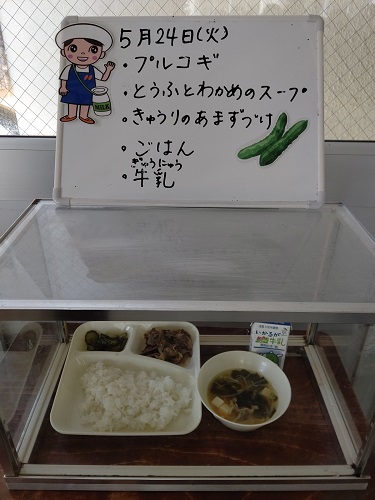 5月24日(火)
・プルコギ
・とうふとわかめのスープ
・きゅうりのあまずづけ
・ごはん
ぎゅうにゅう
・牛乳
MILK
いかるが
牛乳